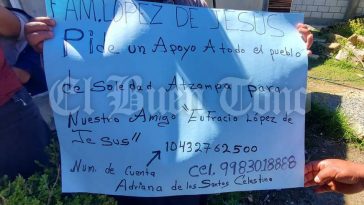 FAM. LÓPEZ DE JESUS
Pide un Apoyo A todo el pueblo
de Soledad Atzompa para
Nuestro Amigo "Eutracio López de
Jesus"
10432762500
Num. de cuenta
cel. 9983018888
Adriana de los Santos Celestino
El Buen Tono